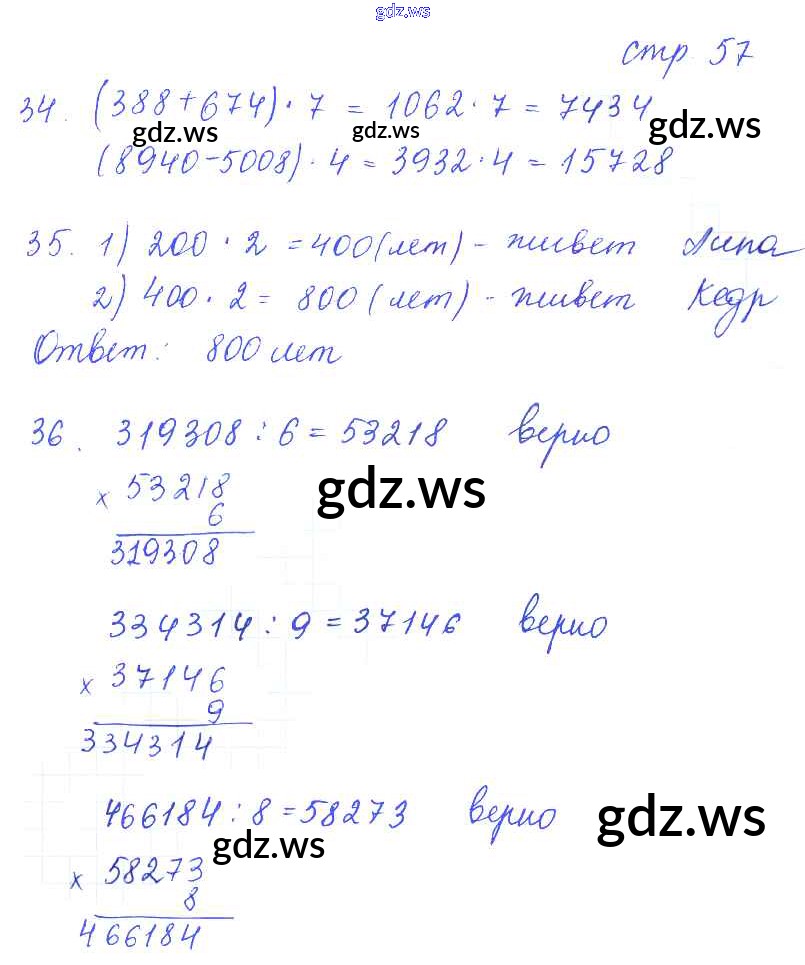 gdz.ws
стр. 57
34. (388+674)·7 = 1062·7 = 7434
gdz.ws gdz.ws gdz.ws
(8940-5008)·4 = 3932·4 = 15728
35. 1) 200·2 = 400 (лет) - живет Липа
2) 400·2 = 800 (лет) - живет Кедр
Ответ: 800 лет
36. 319308 : 6 = 53218 верно
× 53218
gdz.ws
6
319308
334314 : 9 = 37146 верно
× 37146
9
334314
466184 : 8 = 58273 верно
gdz.ws
gdz.ws
× 58273
8
466184